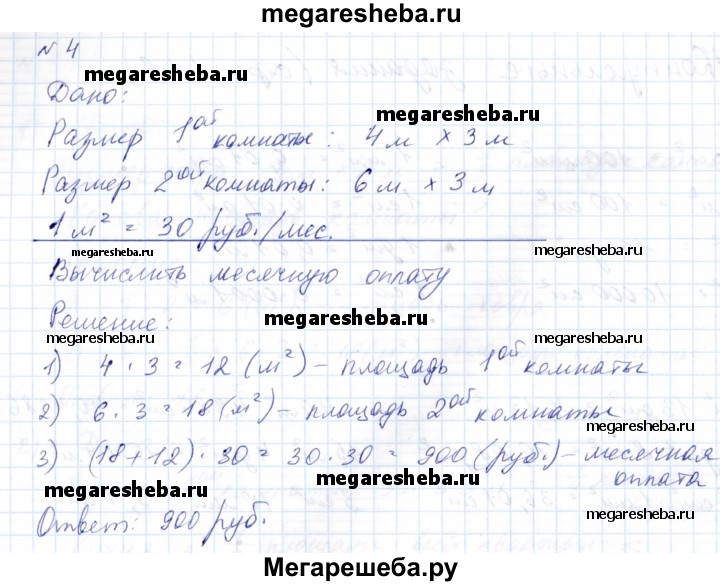 megaresheba.ru
№ 4
megaresheba.ru
Дано:
megaresheba.ru
Размер 1ой комнаты: 4 м × 3 м
Размер 2ой комнаты: 6 м × 3 м
1 м² = 30 руб./мес.
megaresheba.ru
megaresheba.ru
Вычислить месячную оплату
Решение:
megaresheba.ru
megaresheba.ru
megaresheba.ru
1) 4 · 3 = 12 (м²) – площадь 1ой комнаты
2) 6 · 3 = 18 (м²) – площадь 2ой комнаты
megaresheba.ru
3) (18 + 12) · 30 = 30 · 30 = 900 (руб.) – месячная
оплата
megaresheba.ru
megaresheba.ru
megaresheba.ru
Ответ: 900 руб.
megaresheba.ru
Мегарешеба.ру